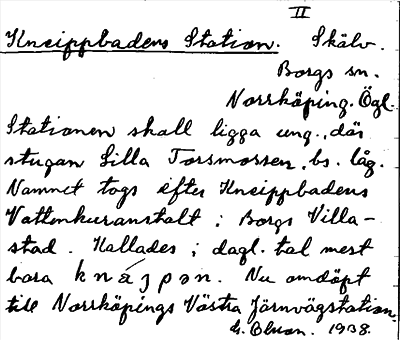 II
Kneippbadens Station. Skälv.
Borgs sn.
Norrköping. Ögl.
Stationen skall ligga ung., där
stugan Lilla Torsmossen, bs. låg.
Namnet togs efter Kneippbadens
Vattenkuranstalt i Borgs Villa-
stad. Kallades i dagl. tal mest
bara knájpən. Nu omdöpt
till Norrköpings Västra Järnvägstation.
1938.